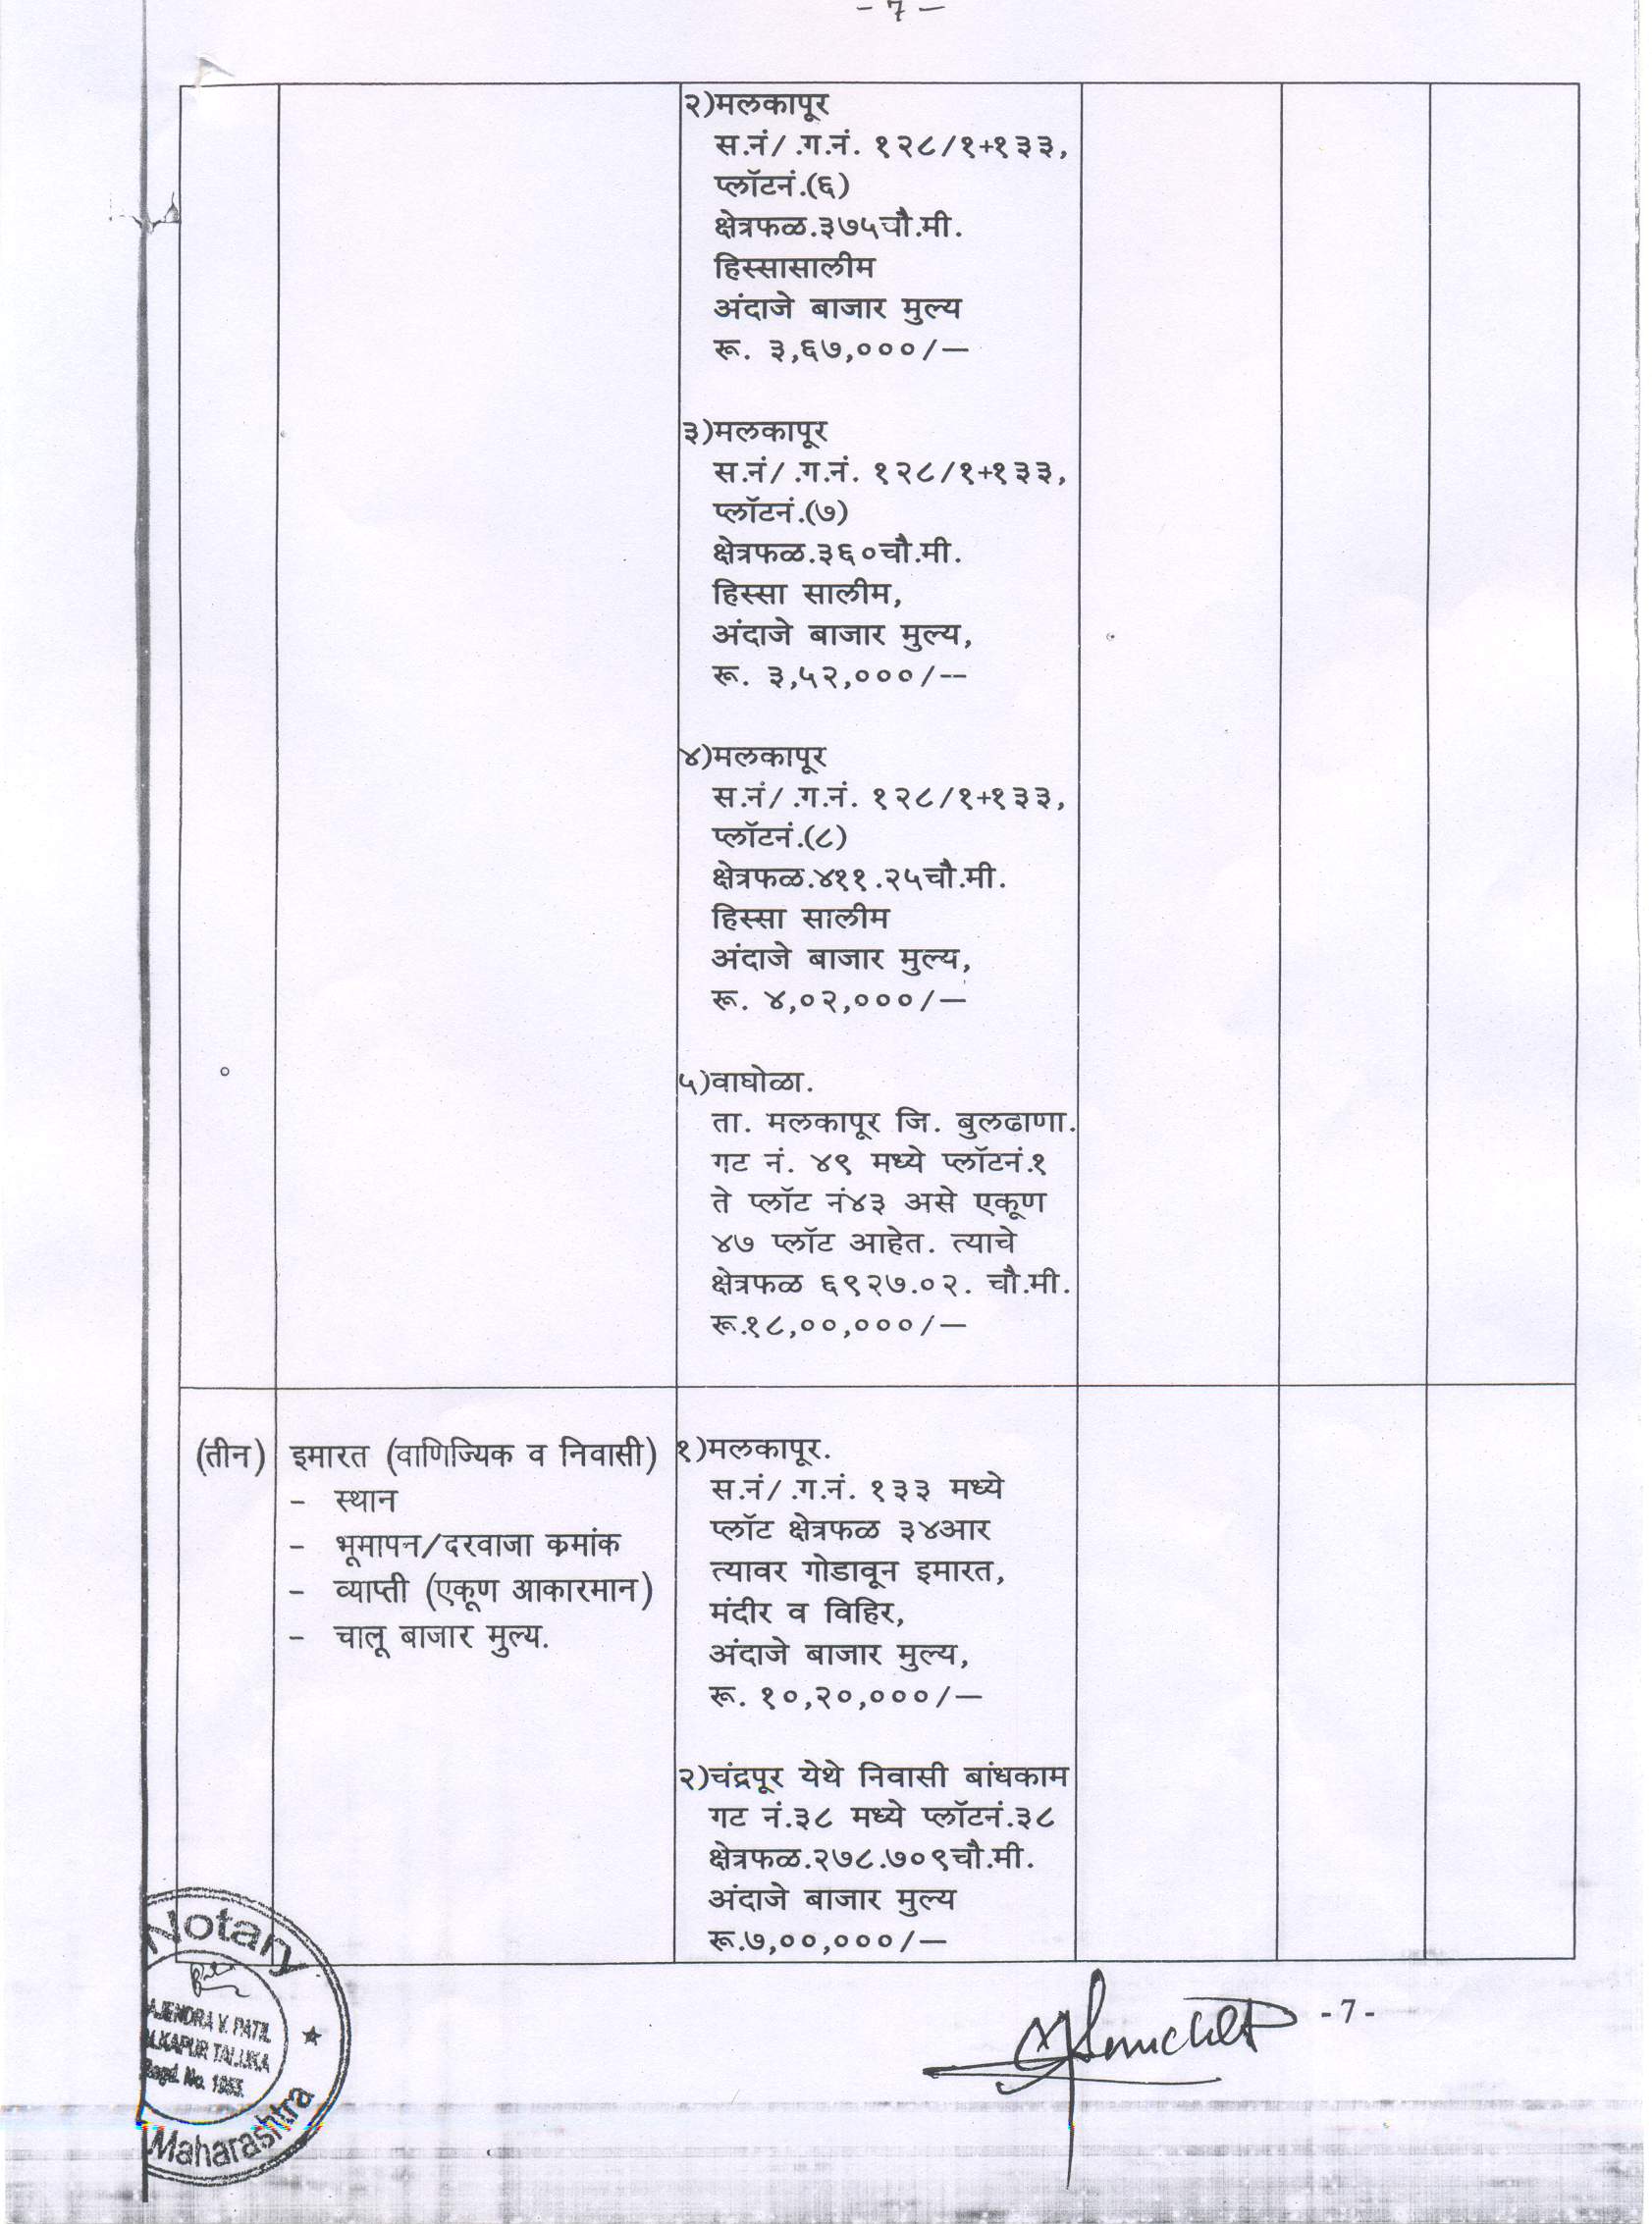 - 7 -
२)मलकापूर
स.नं/ .ग.नं. १२८/१+१३३,
प्लॉटनं.(६)
क्षेत्रफळ.३७५चौ.मी.
हिस्सासालीम
अंदाजे बाजार मुल्य
रू. ३,६७,०००/—
३)मलकापूर
स.नं/ .ग.नं. १२८/१+१३३,
प्लॉटनं.(७)
क्षेत्रफळ.३६०चौ.मी.
हिस्सा सालीम,
अंदाजे बाजार मुल्य,
रू. ३,५२,०००/--
४)मलकापूर
स.नं/ .ग.नं. १२८/१+१३३,
प्लॉटनं.(८)
क्षेत्रफळ.४११.२५चौ.मी.
हिस्सा सालीम
अंदाजे बाजार मुल्य,
रू. ४,०२,०००/—
५)वाघोळा.
ता. मलकापूर जि. बुलढाणा.
गट नं. ४९ मध्ये प्लॉटनं.१
ते प्लॉट नं४३ असे एकूण
४७ प्लॉट आहेत. त्याचे
क्षेत्रफळ ६९२७.०२. चौ.मी.
रू.१८,००,०००/—
(तीन) इमारत (वाणिज्यिक व निवासी)
- स्थान
- भूमापन/दरवाजा कमांक
- व्याप्ती (एकूण आकारमान)
- चालू बाजार मुल्य.
१)मलकापूर.
स.नं/ .ग.नं. १३३ मध्ये
प्लॉट क्षेत्रफळ ३४आर
त्यावर गोडावून इमारत,
मंदीर व विहिर,
अंदाजे बाजार मुल्य,
रू. १०,२०,०००/—
२)चंद्रपूर येथे निवासी बांधकाम
गट नं.३८ मध्ये प्लॉटनं.३८
क्षेत्रफळ.२७८.७०९चौ.मी.
अंदाजे बाजार मुल्य
रू.७,००,०००/—
Notary
AJENDRA V. PATIL
LKAPUR TALUKA
Regd. No. 1953.
Maharashtra
-7-